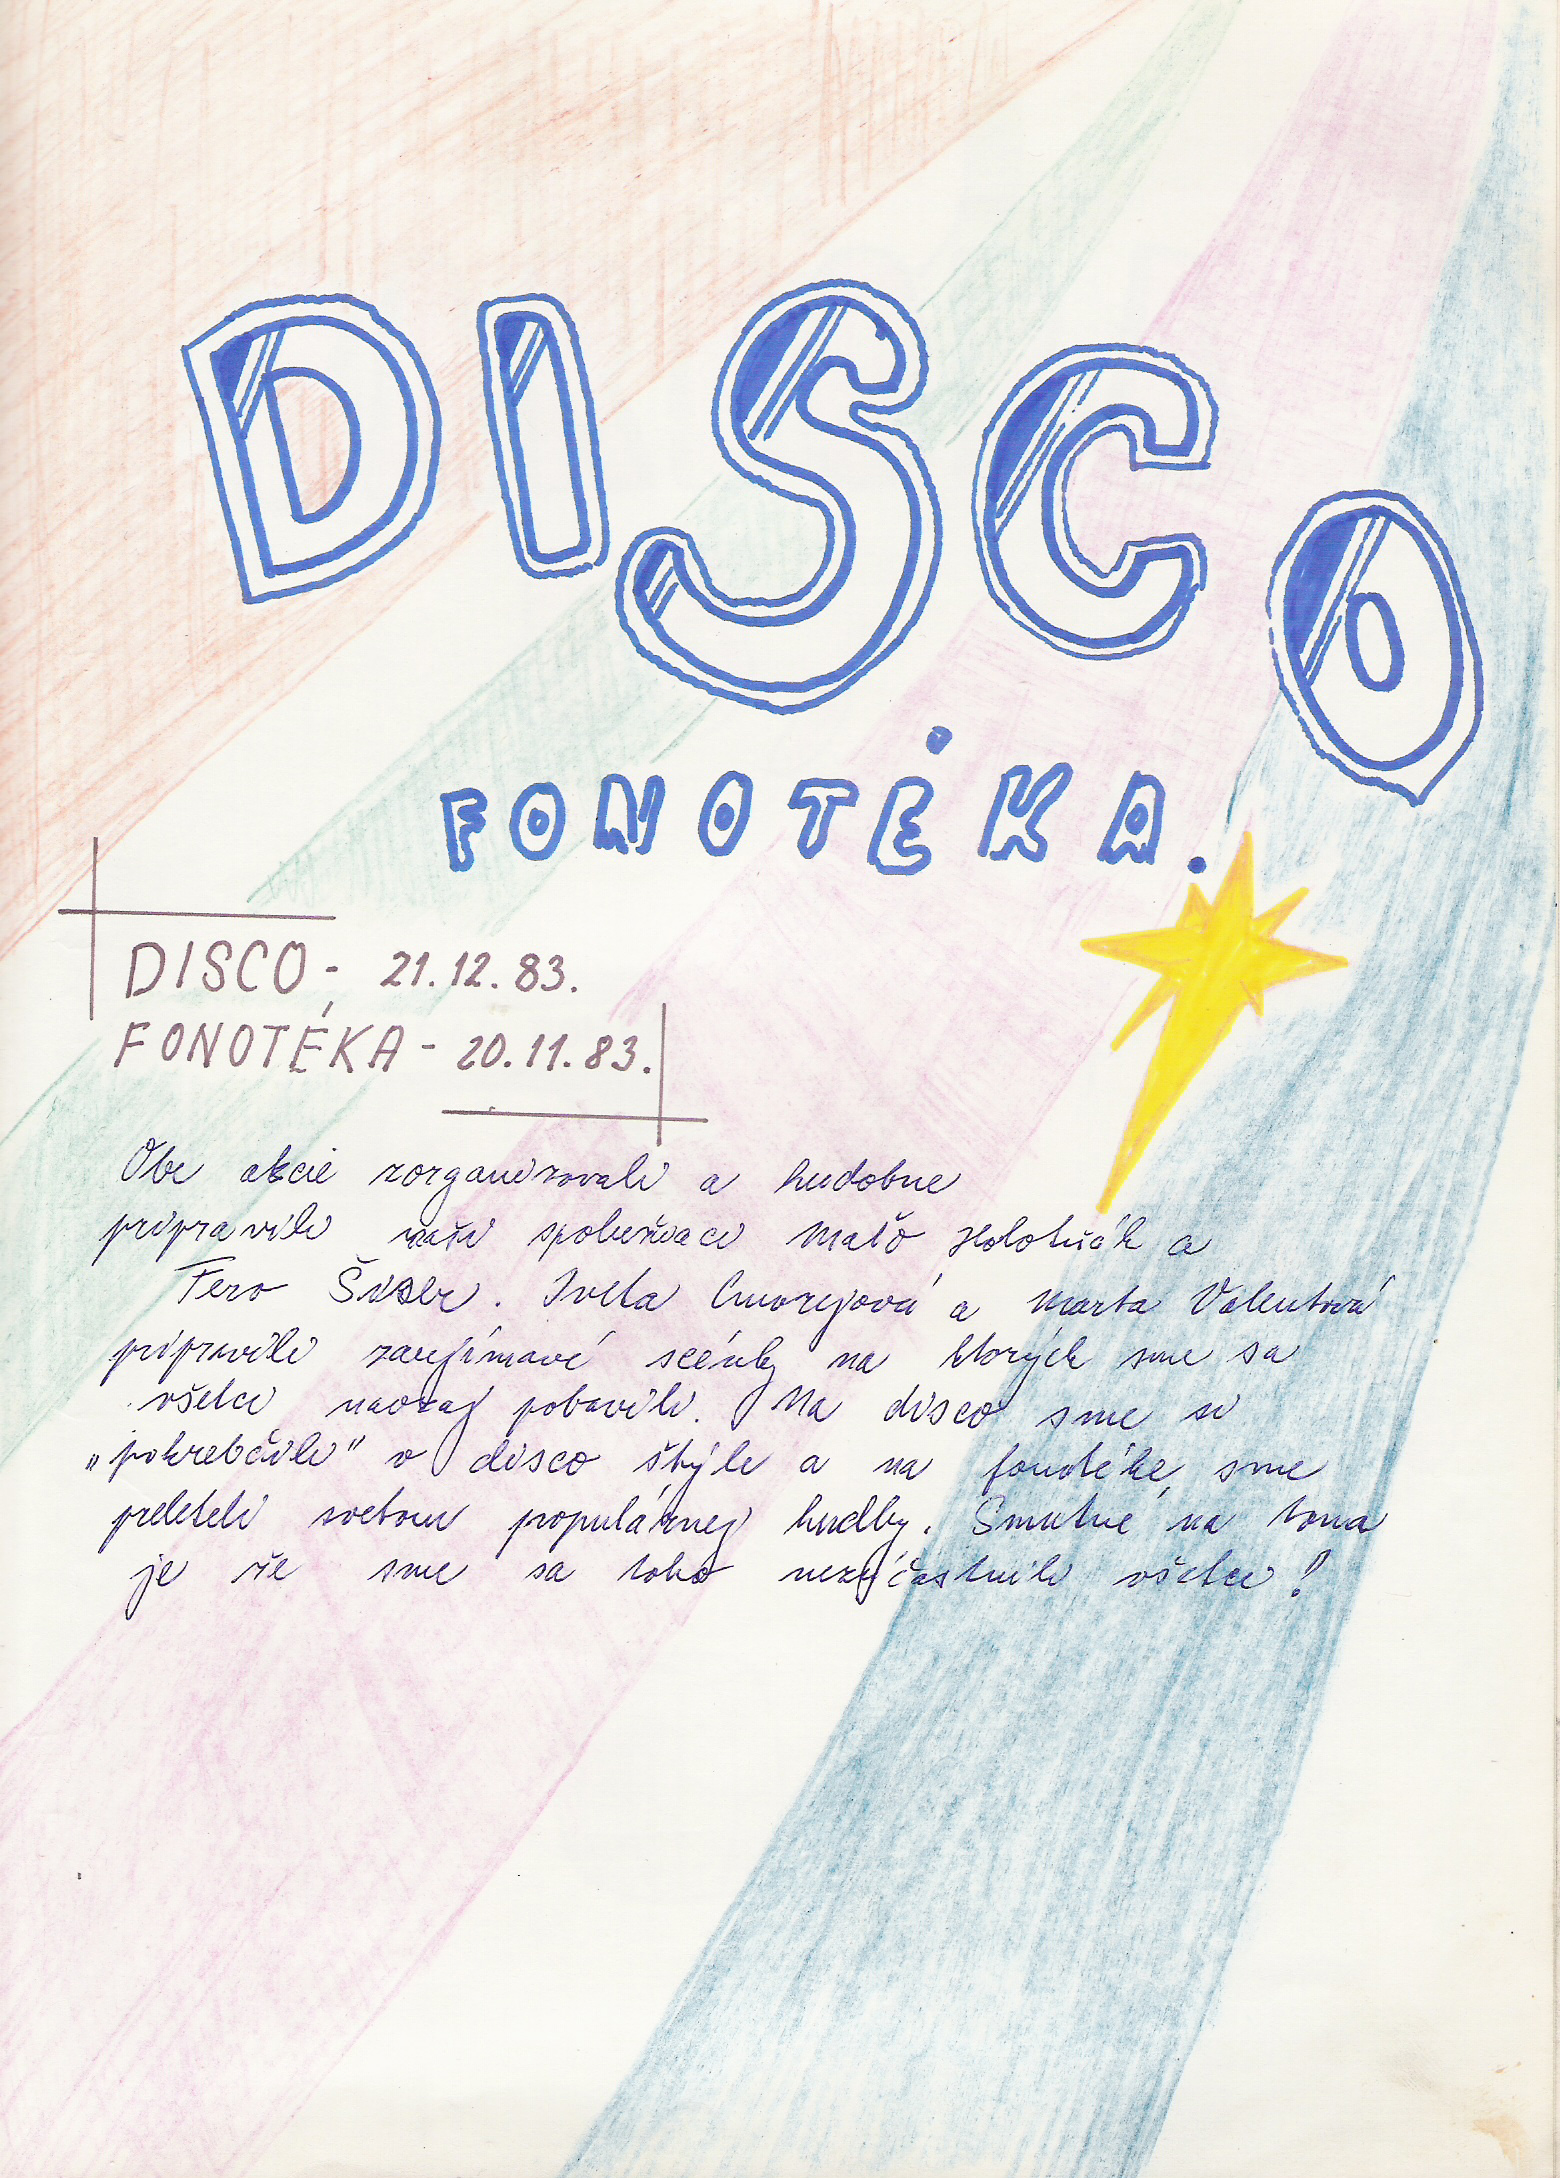 DISCO
FONOTÉKA.
DISCO - 21.12.83.
FONOTÉKA - 20.11.83.
Obe akcie zorganizovali a hudobne
pripravili naši spolužiaci Maťo Holotňák a
Fero Šisler. Iveta Cmorejová a Marta Valentová
pripravili zaujímavé scénky na ktorých sme sa
všetci naozaj pobavili. Na disco sme si
„pokrebčili" v disco štýle a na fonotéke sme
preleteli svetom populárnej hudby. Smutné na tom
je že sme sa toho nezúčastnili všetci!